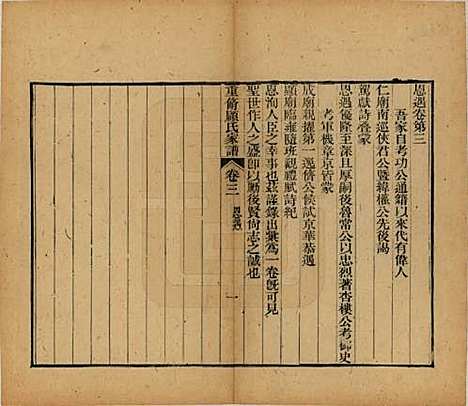 恩遇卷第三
吾家自考功公通籍以來代有偉人
仁廟南巡俠君公暨緯權公先後謁
駕獻詩疊蒙
恩遇優隆至深且厚嗣後魯常公以忠烈著杏樓公考御史
考軍機章京皆蒙
成廟親擢第一逸脩公候試京華恭遇
顯廟臨雍隨班觀禮賦詩紀
恩洵人臣之幸事也茲謹錄出彙為一卷旣可見
聖世作人之盛卽以勵後賢尚志之誠也
重脩顧氏家譜
卷三
恩遇
一